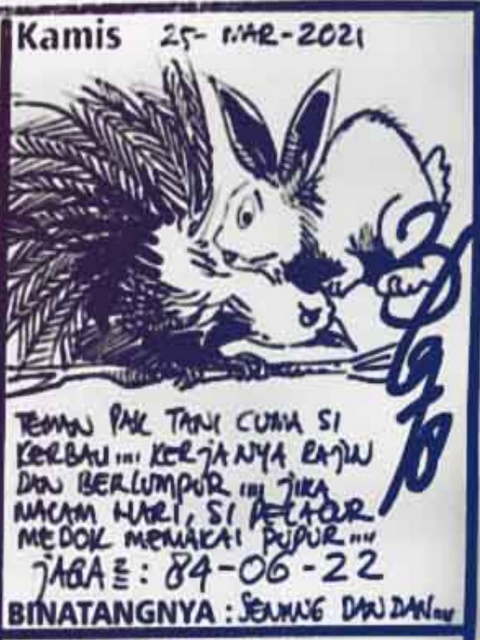 Kamis 25-MAR-2021
TEMAN PAK TANI CUMA SI
KERBAU... KERJANYA RAJIN
DAN BERLUMPUR... JIKA
MALAM HARI, SI PELACUR
MEDOK MEMAKAI PUPUR...
JAGA2 : 84-06-22
BINATANGNYA : SENANG DANDAN...